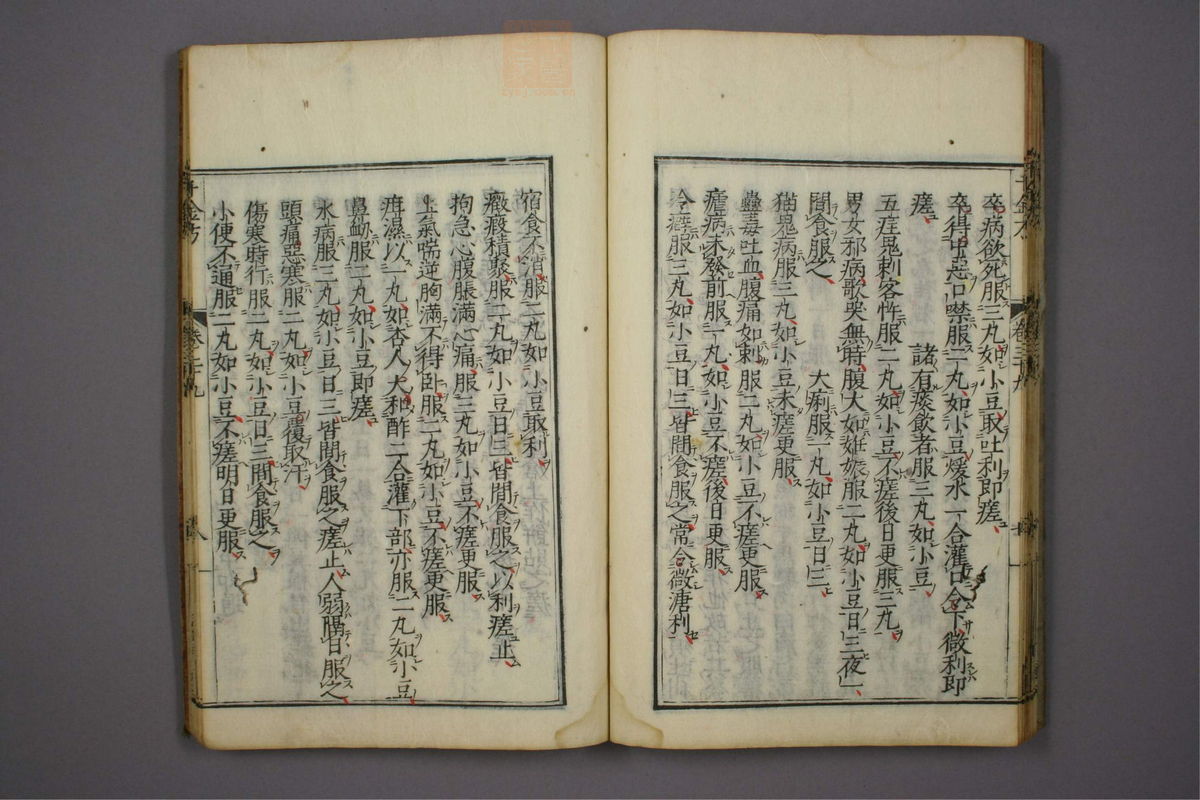 卒病飲死服三丸如小豆取吐利即瘥
卒得中惡口噤服二丸如小豆煖水一合灌口令下微利即
瘥 諸有痰飲者服三丸如小豆
五疰鬼刺客忤服二丸如小豆不瘥後日更服三丸
男女邪病歌哭無時腹大如妊娠服二丸如小豆日三夜一
間食服之 大痢服一丸如小豆日三
猫鬼病服三丸如小豆未瘥更服
蠱毒吐血腹痛如刺服二丸如小豆不瘥更服
瘧病未發前服一丸如小豆不瘥後日更服
冷癖服三丸如小豆日三皆間食服之常令微溏利
宿食不消服二丸如小豆取利
癥瘕積聚服二丸如小豆日三皆間食服之以利瘥止
拘急心腹脹滿心痛服三丸如小豆不瘥更服
上氣喘逆胸滿不得卧服二丸如小豆不瘥更服
疳濕以一丸如杏人大和酢二合灌下部亦服二丸如小豆
鼻衂服二丸如小豆即瘥
水病服三丸如小豆日三皆間食服之瘥止人弱隔日服之
頭痛惡寒服二丸如小豆覆取汗
傷寒時行服二丸如小豆日三間食服之
小便不通服二丸如小豆不瘥明日更服
千金方
卷三十九